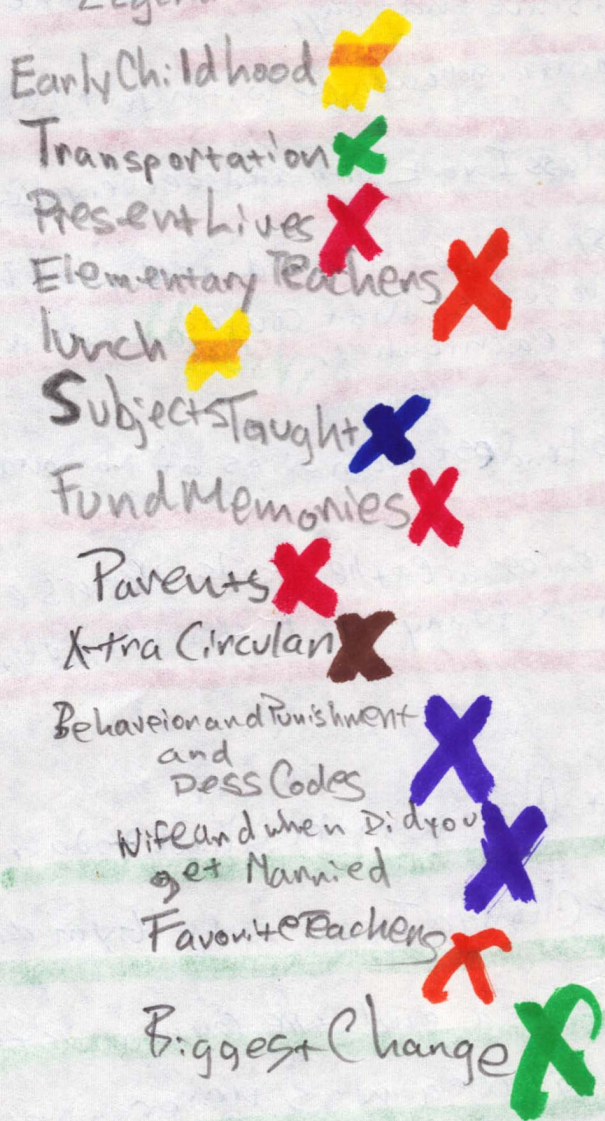 Legend
Early Childhood
Transportation
Present Lives
Elementary Teachers
lunch
Subjects Taught
Fund Memories
Parents
X-tra Circular
Behaveior and Punishment
and
Dess Codes
Wife and when Did you
get Married
Favorite Teachers
Biggest Change